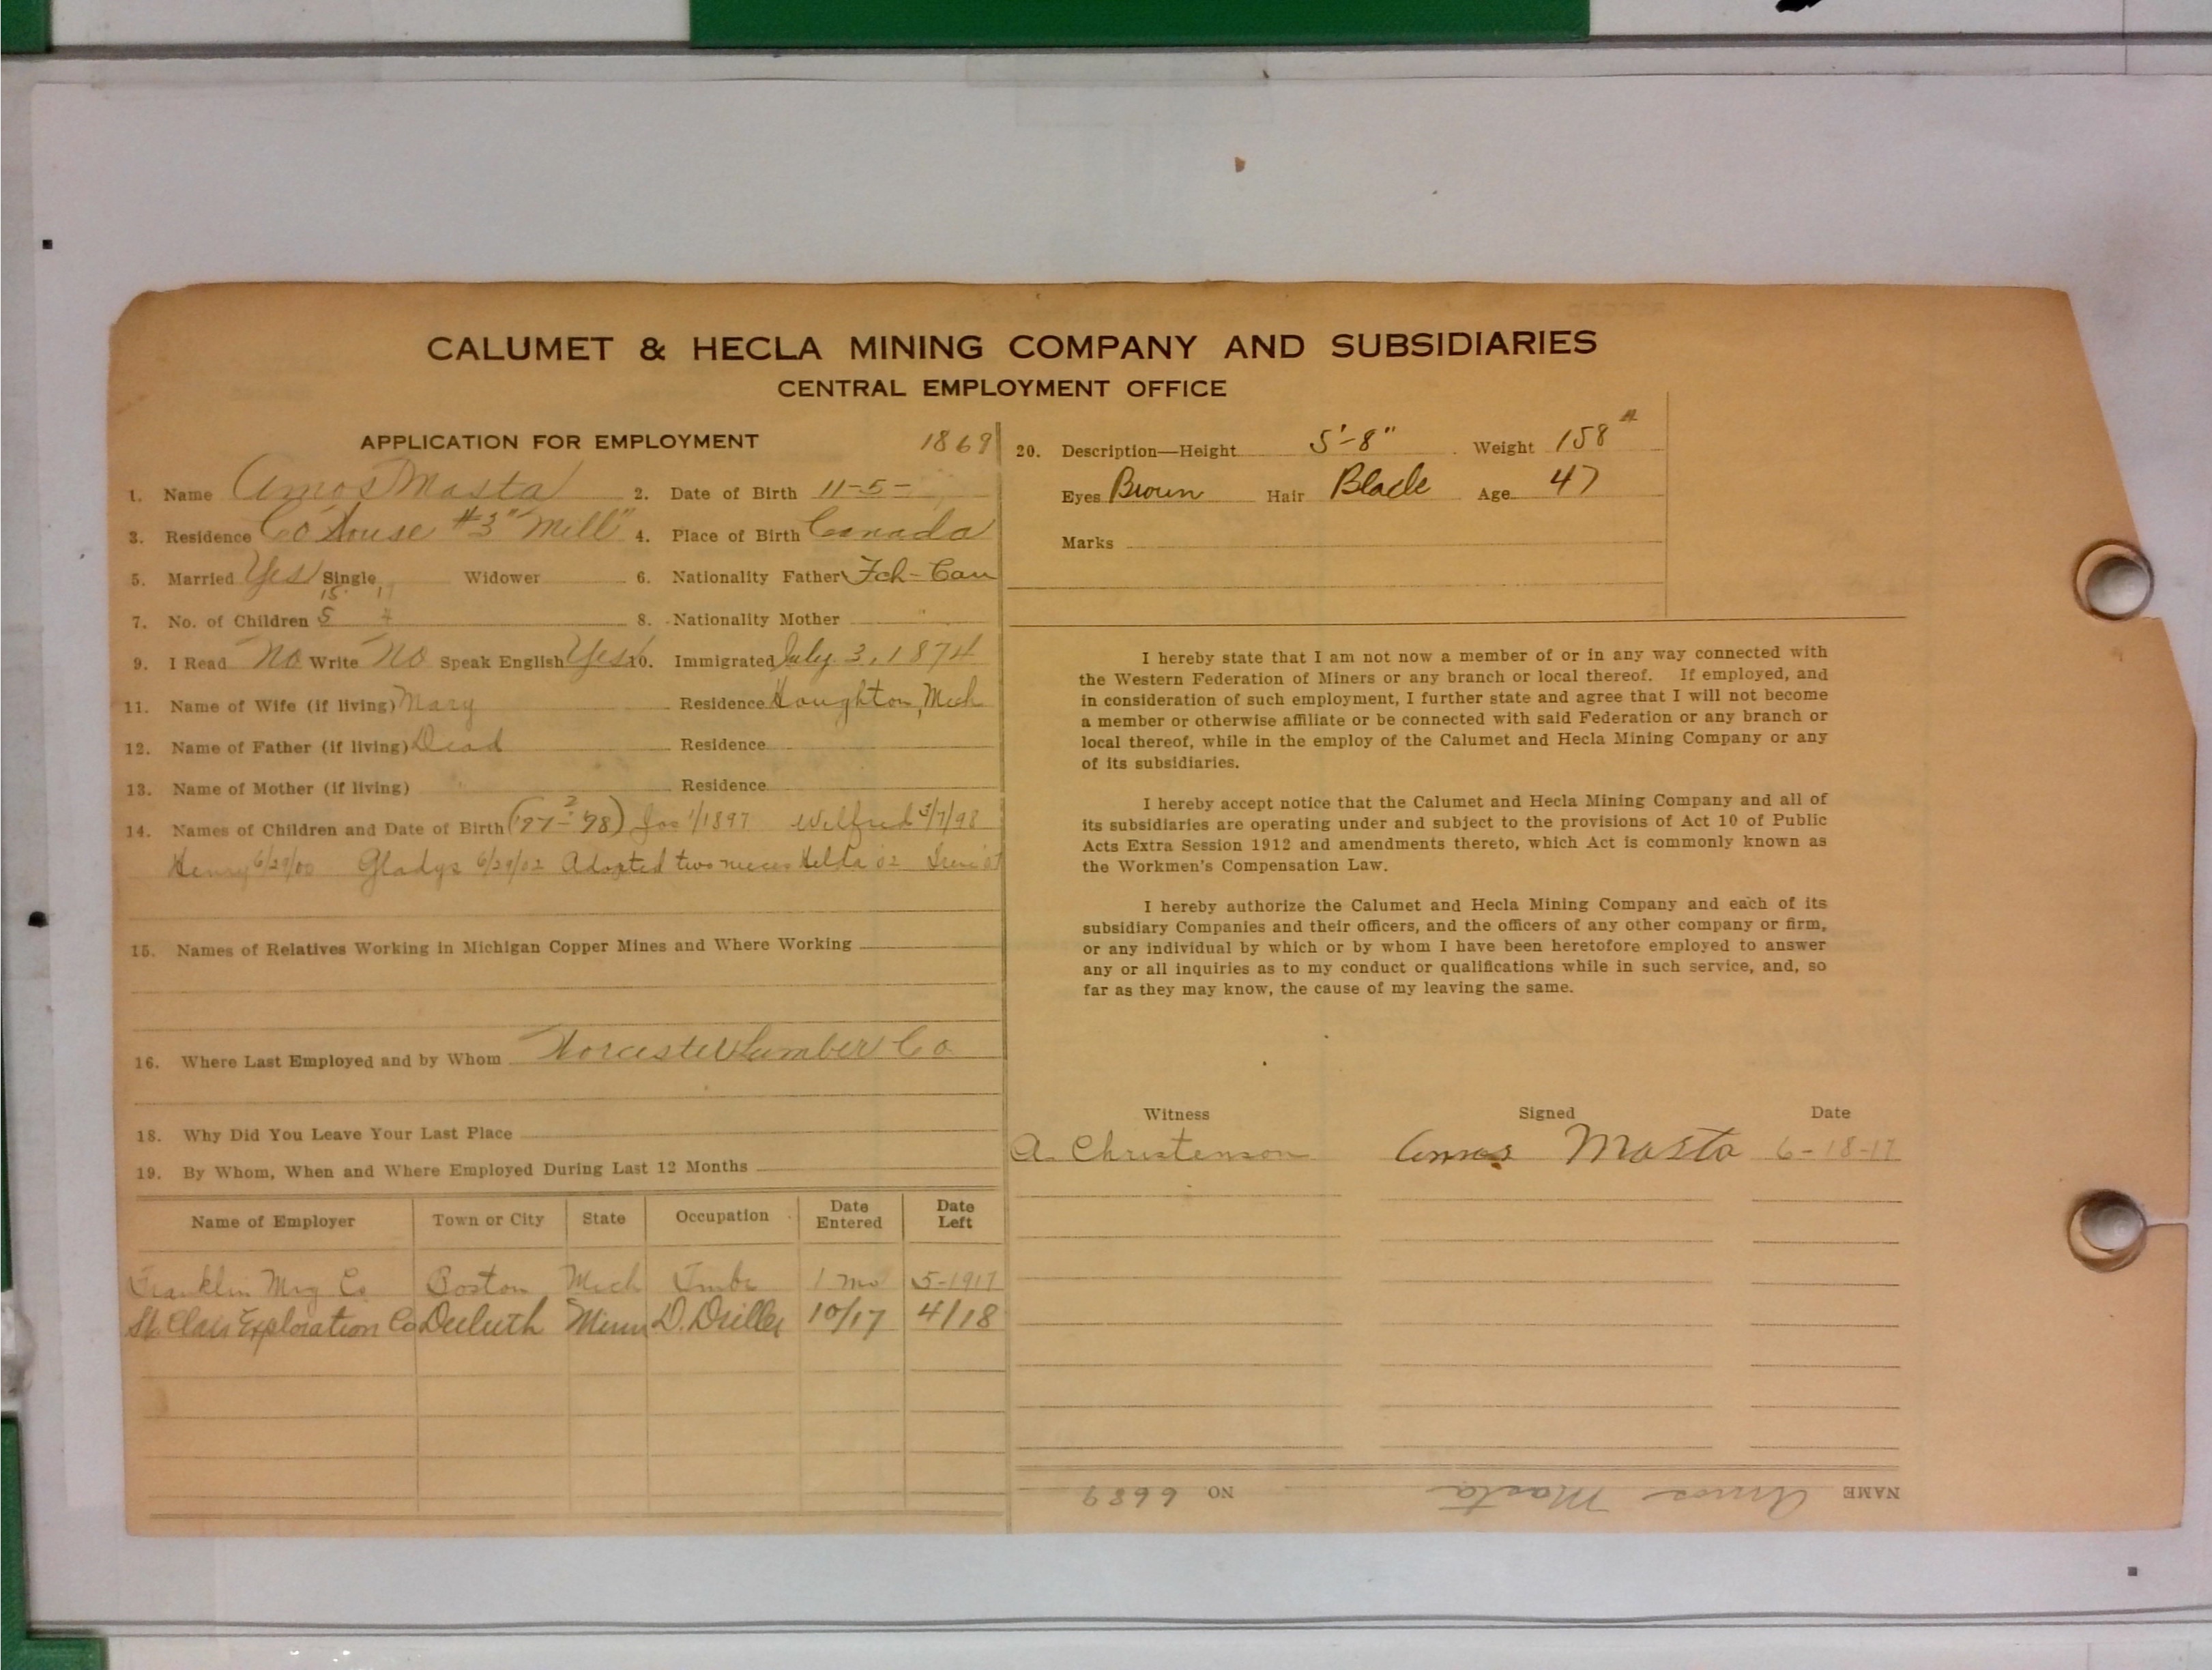 CALUMET & HECLA MINING COMPANY AND SUBSIDIARIES
CENTRAL EMPLOYMENT OFFICE
APPLICATION FOR EMPLOYMENT 1869
1. Name Amos Masta 2. Date of Birth 11-5-
3. Residence Co House #3 "Mill" 4. Place of Birth Canada
5. Married Yes Single Widower 6. Nationality Father Fch-Can
7. No. of Children 5 4 8. Nationality Mother "
9. I Read No Write No Speak English Yes 10. Immigrated July 3, 1874
11. Name of Wife (if living) Mary Residence Houghton, Mich
12. Name of Father (if living) Dead Residence
13. Name of Mother (if living) " Residence
14. Names of Children and Date of Birth ('97-'98) Jos 1/1897 Wilfred 3/7/98
Henry 6/29/00 Gladys 6/29/02 Adopted two nieces Helda 02
15. Names of Relatives Working in Michigan Copper Mines and Where Working
16. Where Last Employed and by Whom Worcester Lumber Co
18. Why Did You Leave Your Last Place
19. By Whom, When and Where Employed During Last 12 Months
Name of Employer Town or City State Occupation Date Entered Date Left
Franklin Mng Co Boston Mich Timbr 1 mo 5-1917
St. Clair Exploration Co Duluth Minn D. Driller 10/17 4/18
20. Description—Height 5'-8" Weight 158 #
Eyes Brown Hair Black Age 47
Marks
I hereby state that I am not now a member of or in any way connected with
the Western Federation of Miners or any branch or local thereof. If employed, and
in consideration of such employment, I further state and agree that I will not become
a member or otherwise affiliate or be connected with said Federation or any branch or
local thereof, while in the employ of the Calumet and Hecla Mining Company or any
of its subsidiaries.
I hereby accept notice that the Calumet and Hecla Mining Company and all of
its subsidiaries are operating under and subject to the provisions of Act 10 of Public
Acts Extra Session 1912 and amendments thereto, which Act is commonly known as
the Workmen's Compensation Law.
I hereby authorize the Calumet and Hecla Mining Company and each of its
subsidiary Companies and their officers, and the officers of any other company or firm,
or any individual by which or by whom I have been heretofore employed to answer
any or all inquiries as to my conduct or qualifications while in such service, and, so
far as they may know, the cause of my leaving the same.
Witness Signed Date
A. Christenson Amos Masta 6-18-17
NAME Amos Masta NO 6689